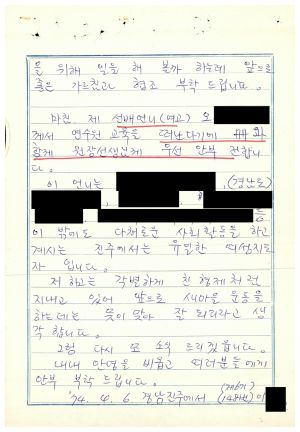 을 위해 일을 해 볼까 하는데 앞으로
좋은 가르침과 협조 부탁 드립니다.
마침 제 선배언니(여고) 오
께서 연수원 교육을 떠난다기에
함께 원장선생님께 우선 안부 전합니
다.
이 언니는 (경남도)
등
이 밖에도 다채로운 사회활동을 하고
계시는 진주에서는 유일한 여성지도
자 입니다.
저 하고는 각별하게 친 형제처럼
지내고 있어 앞으로 새마을 운동을
하는데는 뜻이 맞아 잘 되리라고 생
각 합니다.
그럼 다시 또 소식 드리겠읍니다.
내내 안녕을 비옵고 여러분들에게
안부 부탁 드립니다.
'74. 4. 6 경남진주에서 (제6기)